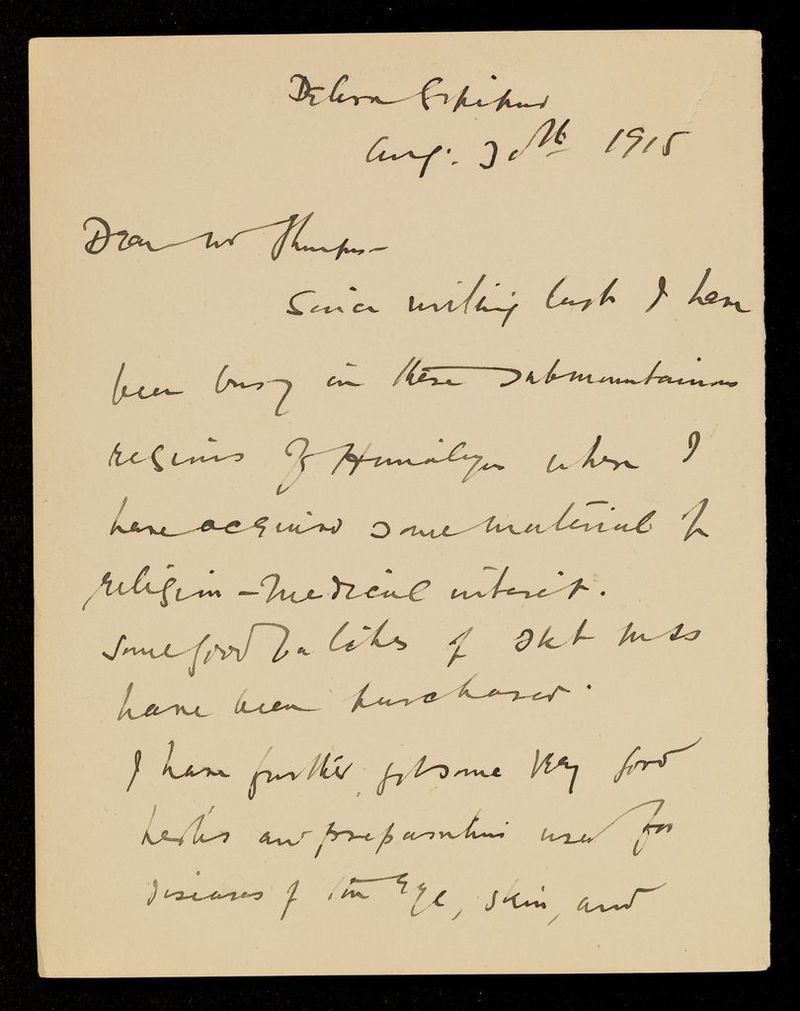 Dehra
Aug. 30th 1915
Dear Mr Thompson
Since writing last I have
been busy in these submountainous
regions of Himalyas where I
have acquired some material of
religio-medical interest.
Some good batches of Skt mss
have been purchased.
I have further got some very good
herbs and preparations used for
diseases of the Eye, skin, and